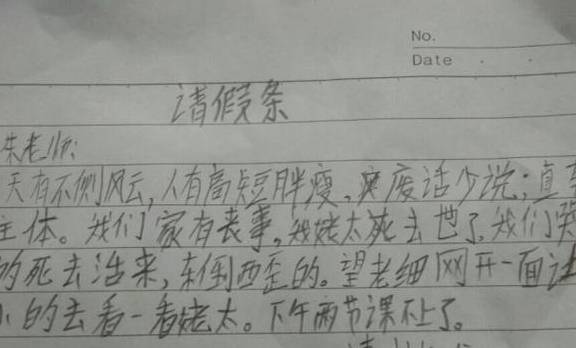 No.
Date
请假条
朱老师:
天有不侧风云,人有高短胖瘦、废话少说;直
主体。我们家有丧事,我姥太死去世了,我们哭
的死去活来,东倒西歪的。望老细网开一面让
小的去看一看姥太。下午两节课不上了。